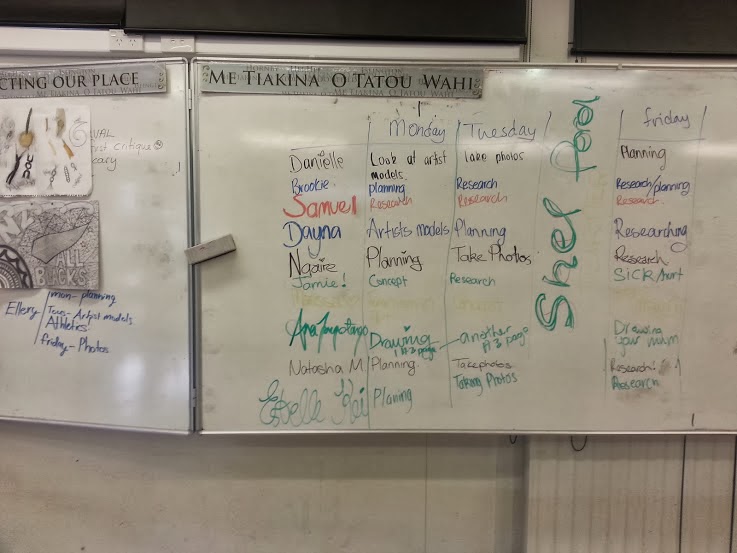 CTING OUR PLACE
ME TIAKINA O TATOU WAHI
ALL
BLACKS
Ellery
mon- planning
Tues- Artist models
Athletics
friday- Photos
Monday Tuesday friday
Danielle Look at artist models. Take photos Planning
Brookie planning Research Research/planning
Samuel Research Research Research
Dayna Artists models Planning Researching
Ngaire Planning Take Photos Research
Jamie! Concept Research Sick/hurt
Drawing another Drawing your mum
A3 page A3 page
Natasha M. Planning. Take photos Research!
Estelle Planing Taking Photos Research
Shef